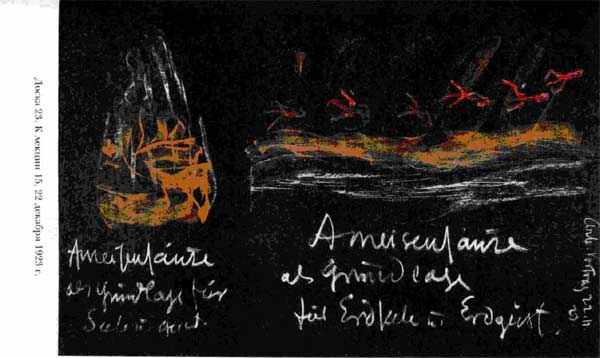 Доска 23. К лекции 15, 22 декабря 1923 г.
Ameisensäure
als Grundlage für
Seele u. Geist.
Ameisensäure
als Grundlage
für Erdseele u Erdgeist.
Vortrag